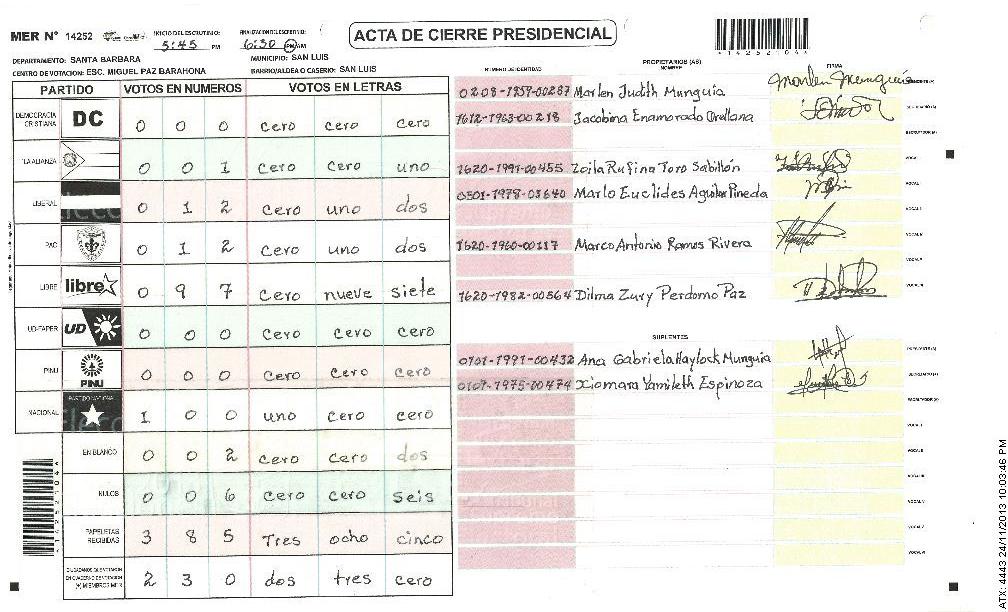 MER N° 14252
INICIO DEL ESCRUTINIO:
5:45 PM
FINALIZACION DEL ESCRUTINIO:
6:30 PM AM
ACTA DE CIERRE PRESIDENCIAL
41425210 4
DEPARTAMENTO: SANTA BARBARA
MUNICIPIO: SAN LUIS
CENTRO DE VOTACION: ESC. MIGUEL PAZ BARAHONA
BARRIO/ALDEA O CASERIO: SAN LUIS
PARTIDO VOTOS EN NUMEROS VOTOS EN LETRAS
DEMOCRACIA CRISTIANA DC 0 0 0 cero cero cero
ALIANZA 0 0 1 cero cero uno
LIBERAL 0 1 2 cero uno dos
PAC 0 1 2 cero uno dos
LIBRE libre 0 9 7 cero nueve siete
UD-FAPER UD 0 0 0 cero cero cero
PINU PINU 0 0 0 cero cero cero
NACIONAL PARTIDO NACIONAL 1 0 0 uno cero cero
EN BLANCO 0 0 2 cero cero dos
NULOS 0 0 6 cero cero seis
PAPELETAS RECIBIDAS 3 8 5 Tres ocho cinco
CIUDADANOS QUE VOTARON EN CUADERNO DE VOTACION (+) MIEMBROS MER 2 3 0 dos tres cero
NUMERO DE IDENTIDAD
PROPIETARIOS (AS)
NOMBRE
FIRMA
0208-1959-00287 Marlen Judith Munguia Marlen Munguia
1612-1963-00218 Jacobina Enamorado Orellana
1620-1991-00455 Zoila Rufina Toro Sabillón
0501-1978-03640 Marlo Euclides Aguilar Pineda
1620-1960-00117 Marco Antonio Ramos Rivera
1620-1982-00564 Dilma Zury Perdomo Paz
SUPLENTES
0101-1991-00432 Ana Gabriela Haylock Munguia
0107-1975-00474 Xiomara Yamileth Espinoza
ATX: 4443 24/11/2013 10:03:46 PM